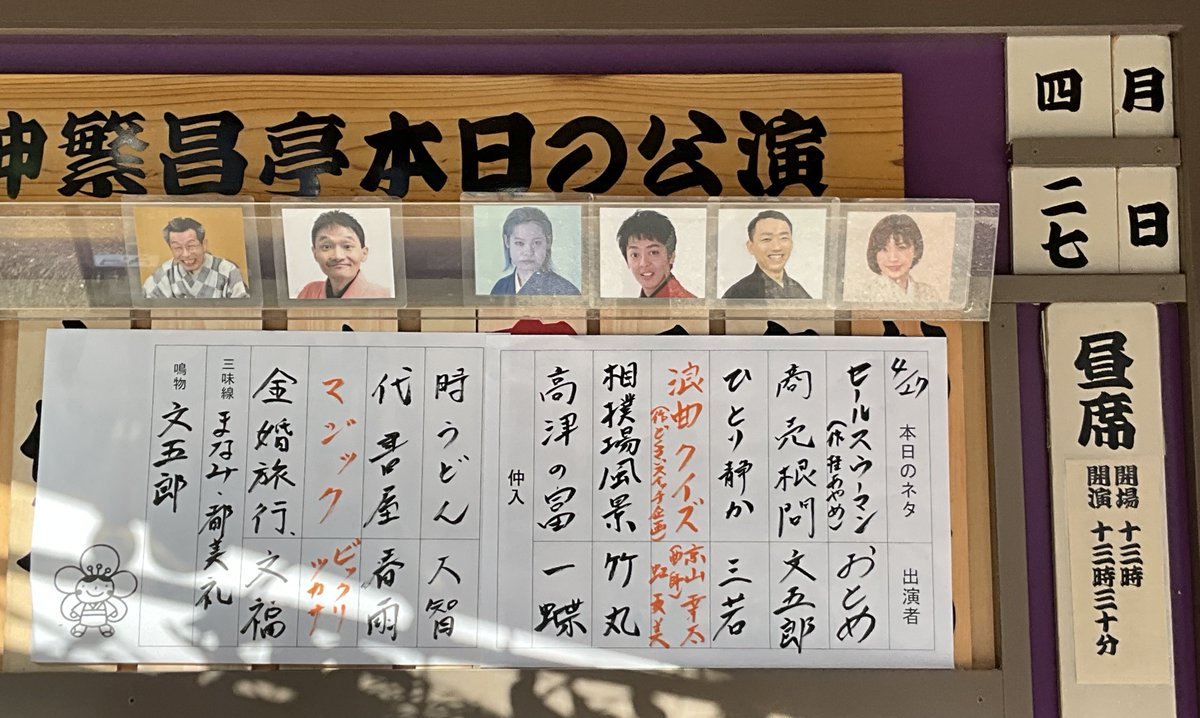 神繁昌亭本日の公演
四月
二七日
昼席
開場 十三時
開演 十三時三十分
4/27 本日のネタ 出演者
セールスウーマン (作 桂あやめ) おとめ
商売根問 文五郎
ひとり静か 三若
浪曲クイズ 京山幸太
相撲場風景 竹丸
高津の冨 一蝶
仲入
時うどん 智
代書屋 春雨
マジック ビックリツカサ
金婚旅行、文福
三味線 まなみ・都美礼
鳴物 文五郎